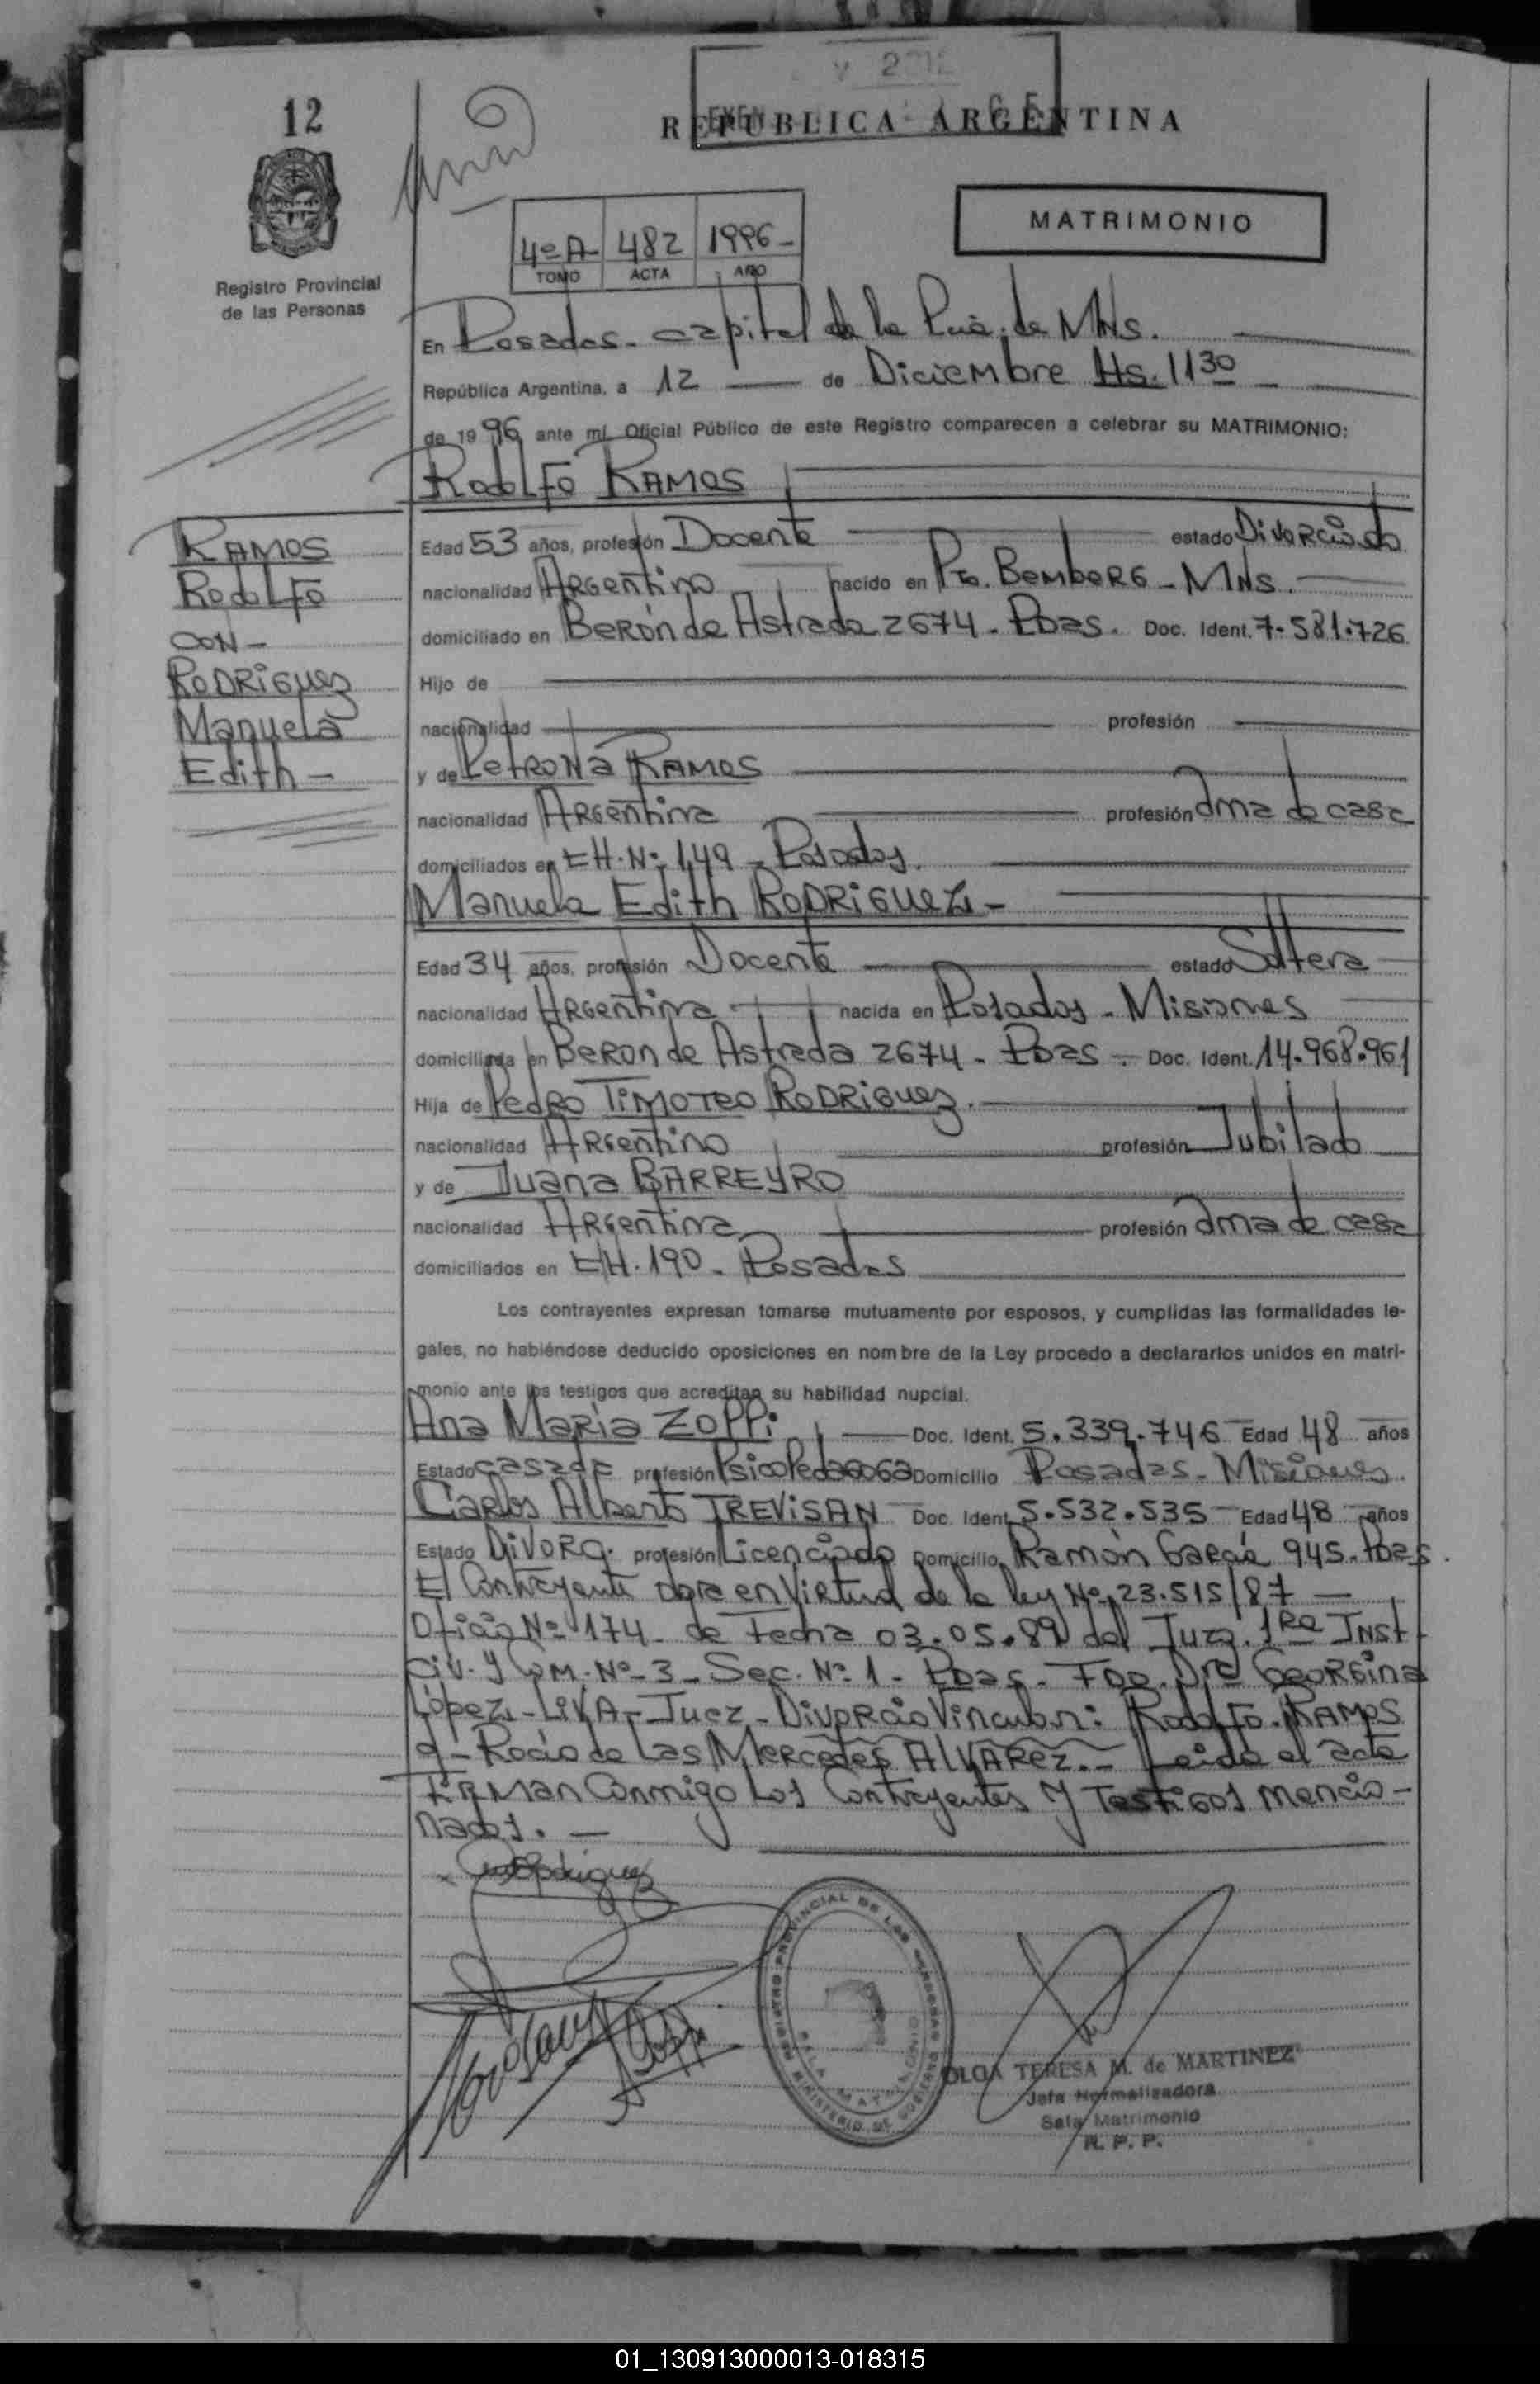 12
REPUBLICA ARGENTINA
MATRIMONIO
4º A 482 1996-
TOMO ACTA AÑO
Registro Provincial
de las Personas
En Posadas- capital de la Pcia. de Mnes.
República Argentina, a 12 de Diciembre Hs. 11 30
de 1996 ante mí Oficial Público de este Registro comparecen a celebrar su MATRIMONIO:
Rodolfo RAMOS
RAMOS
Rodolfo
CON-
RODRIGUEZ
Manuela
Edith-
Edad 53 años, profesión Docente estado Divorciado
nacionalidad Argentino nacido en Pto. Bemberg - Mns.
domiciliado en Berón de Astrada 2674- Pdas. Doc. Ident. 7.581.726
Hijo de
nacionalidad profesión
y de Petrona RAMOS
nacionalidad Argentina profesión ama de casa
domiciliados en CH. Nº 149- Posadas.
Manuela Edith RODRIGUEZ-
Edad 34 años, profesión Docente estado Soltera
nacionalidad Argentina nacida en Posadas - Misiones
domiciliada en Beron de Astrada 2674- Pdas- Doc. Ident. 14.968.961
Hija de Pedro Timoteo RODRIGUEZ.
nacionalidad Argentino profesión Jubilado
y de Juana BARREYRO
nacionalidad Argentina profesión ama de casa
domiciliados en CH. 190- Posadas
Los contrayentes expresan tomarse mutuamente por esposos, y cumplidas las formalidades le-
gales, no habiéndose deducido oposiciones en nombre de la Ley procedo a declararlos unidos en matri-
monio ante los testigos que acreditan su habilidad nupcial.
Ana María ZOPPi Doc. Ident. 5.339.746 Edad 48 años
Estado casada profesión Psicopedagoga Domicilio Posadas- Misiones.
Carlos Alberto TREVISAN Doc. Ident. 5.532.535 Edad 48 años
Estado Divorc. profesión Licenciado Domicilio Ramón García 945- Pdas.
El Contrayente obra en Virtud de la ley Nº 23.515/87-
Oficio Nº 174- de fecha 03.05.89 del Juzg. 1ra Inst
Civ. y Com. Nº-3- Sec. Nº 1- Pdas- FDO. Dra Georgina
López- LIVA- Juez- Divorcio Vincular: Rodolfo- RAMOS
y- Rocio de Las Mercedes ALVAREZ.- Leida el acta
Firman Conmigo Los Contrayentes y Testigos mencio-
nados.-
REGISTRO PROVINCIAL DE LAS PERSONAS
MINISTERIO DE GOBIERNO
SALA MATRIMONIO
OLGA TERESA M. de MARTINEZ
Jefa Normalizadora
Sala Matrimonio
R. P. P.
01_130913000013-018315